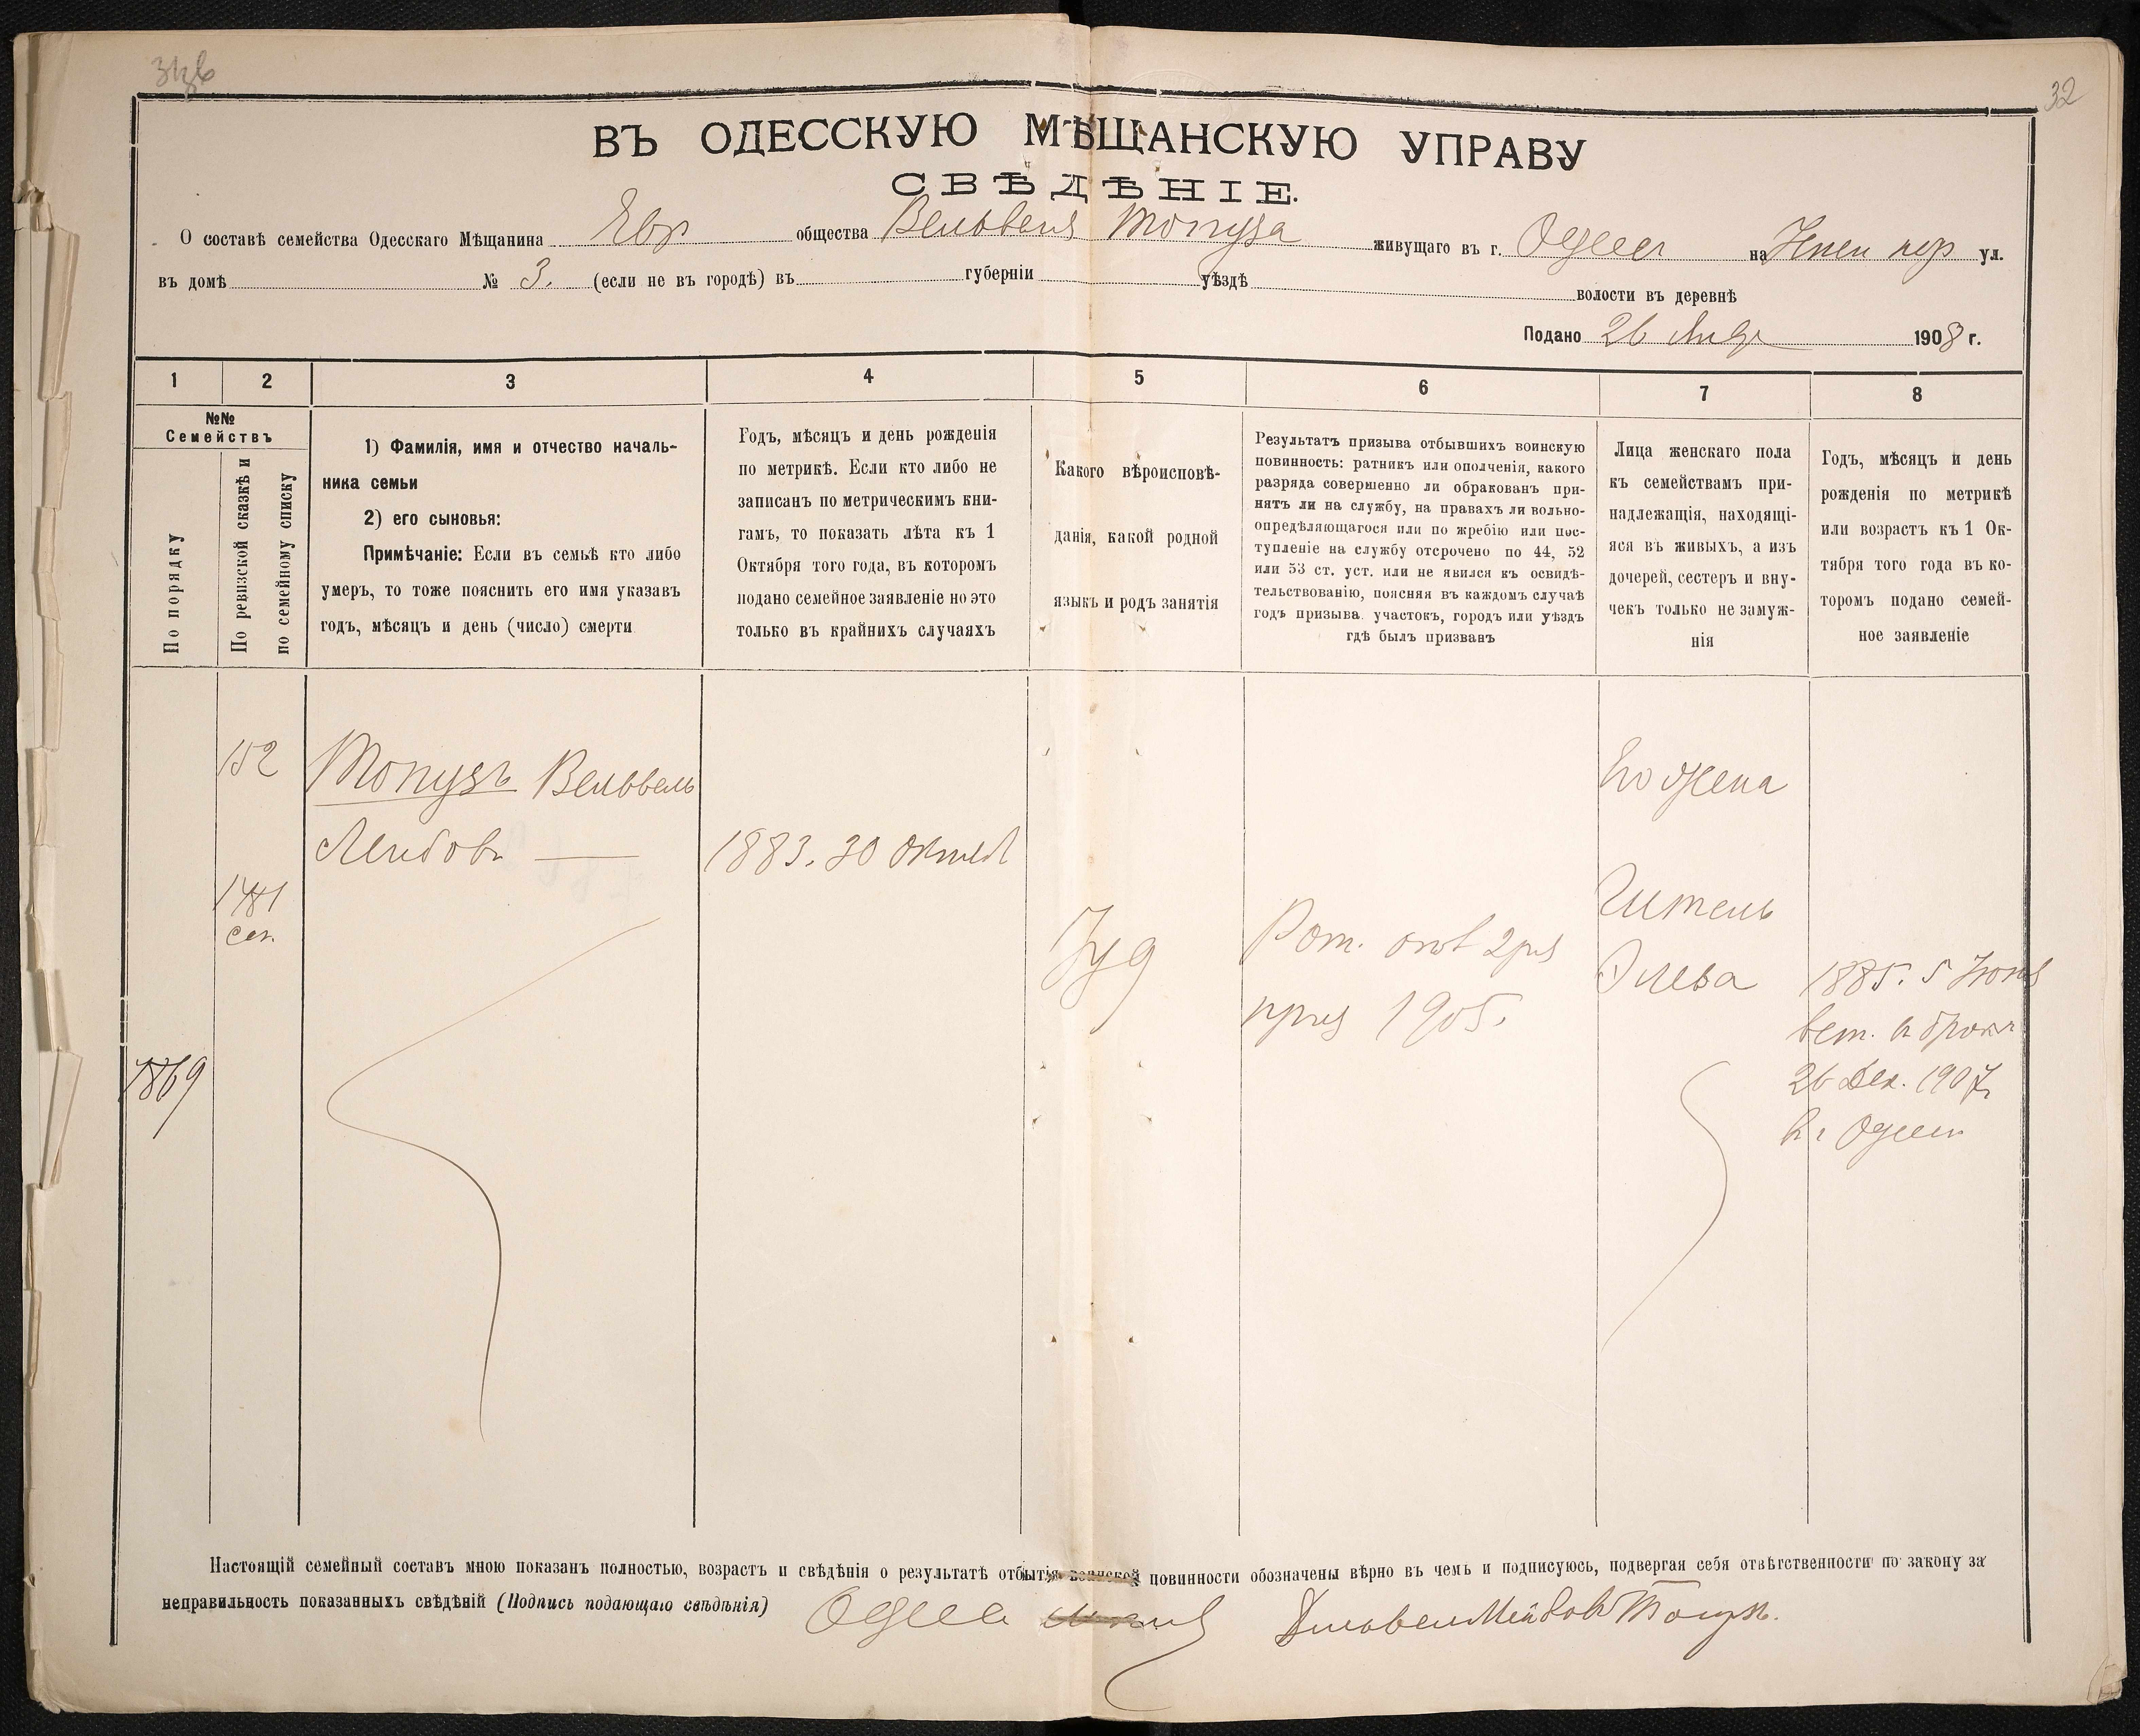 32
ВЪ ОДЕССКУЮ МѢЩАНСКУЮ УПРАВУ
СВѢДѢНІЕ.
О составѣ семейства Одесскаго Мѣщанина Евр общества Вельвеля Топуза живущаго въ г. Одессѣ на пер ул.
въ домѣ № 3. (если не въ городѣ) въ губерніи уѣздѣ волости въ деревнѣ
Подано 26 Янвр 1908 г.
1 2 3 4 5 6 7 8
№№
Семействъ
По порядку
По ревизской сказкѣ и
по семейному списку
1) Фамилія, имя и отчество началь-
ника семьи
2) его сыновья:
Примѣчаніе: Если въ семьѣ кто либо
умеръ, то тоже пояснить его имя указавъ
годъ, мѣсяцъ и день (число) смерти
Годъ, мѣсяцъ и день рожденія
по метрикѣ. Если кто либо не
записанъ по метрическимъ кни-
гамъ, то показать лѣта къ 1
Октября того года, въ которомъ
подано семейное заявленіе но это
только въ крайнихъ случаяхъ
Какого вѣроисповѣ-
данія, какой родной
языкъ и родъ занятія
Результатъ призыва отбывшихъ воинскую
повинность: ратникъ или ополченія, какого
разряда совершенно ли обракованъ при-
нятъ ли на службу, на правахъ ли вольно-
опредѣляющагося или по жребію или пос-
тупленіе на службу отсрочено по 44, 52
или 53 ст. уст. или не явился къ освидѣ-
тельствованію, поясняя въ каждомъ случаѣ
годъ призыва участокъ, городъ или уѣздъ
гдѣ былъ призванъ
Лица женскаго пола
къ семействамъ при-
надлежащія, находящі-
яся въ живыхъ, а изъ
дочерей, сестеръ и вну-
чекъ только не замуж-
нія
Годъ, мѣсяцъ и день
рожденія по метрикѣ
или возрастъ къ 1 Ок-
тября того года въ ко-
торомъ подано семей-
ное заявленіе
1869
152
1481
сем.
Топузъ Вельвель
Лейбовъ
1883. 30 октяб
Іуд
Рат. опол 2 раз
приз 1905.
Его жена
Гитель
Элева
1885. 5 Іюня
вст. въ бракъ
26 Дек. 1907 г.
въ г Одессѣ
Настоящій семейный составъ мною показанъ полностью, возрастъ и свѣдѣнія о результатѣ отбытія воинской повинности обозначены вѣрно въ чемъ и подписуюсь, подвергая себя отвѣтственности по закону за
неправильность показанныхъ свѣдѣній (Подпись подающаго свѣдѣнія) Одесс Топузъ.